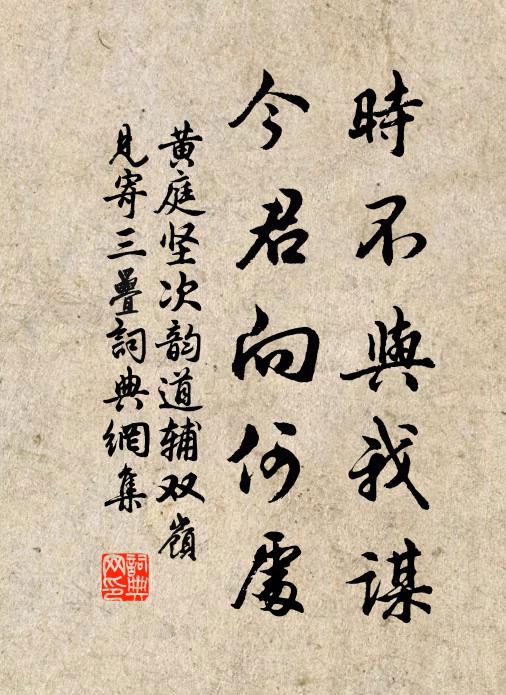 時不與我謀
今君向何處
黄庭坚次韵道辅双嶺
見寄三疊詞典網集
詞典网印